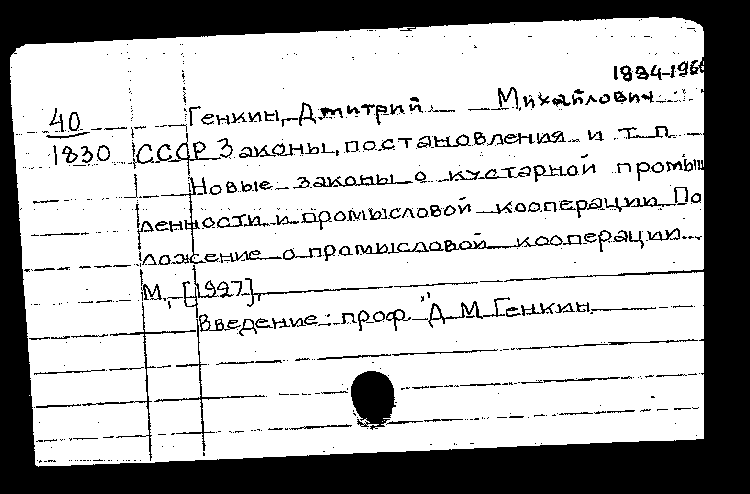 1884-1966
40 Генкин, Дмитрий Михайлович
1830 СССР Законы, постановления и т. п.
Новые законы о кустарной промыш
ленности и промысловой кооперации. По
ложение о промысловой кооперации.
М., [1927],
Введение: проф. "Д. М. Генкин.